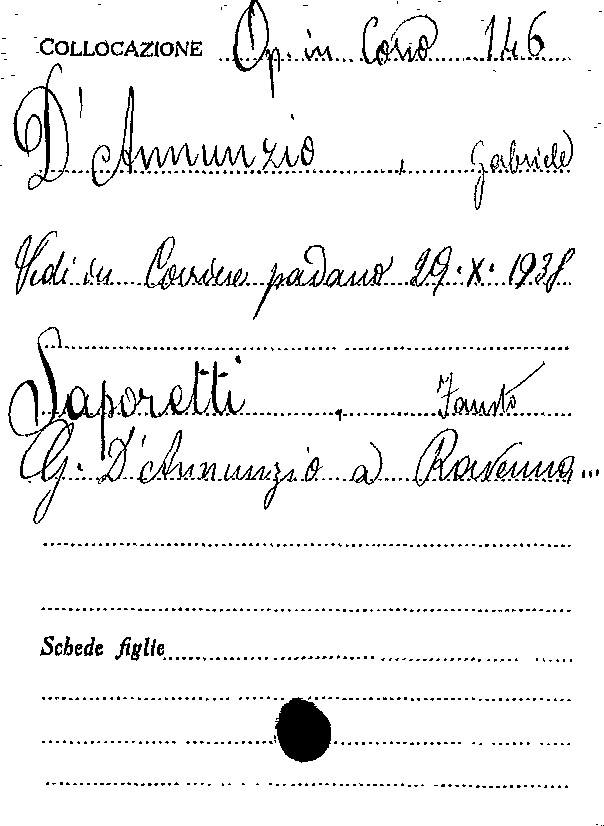 COLLOCAZIONE Op. in Corso 146
D'Annunzio, Gabriele
Vedi in Corriere padano 29.X.1938
Saporetti, Fausto
G. D'Annunzio a Ravenna...
Schede figlie